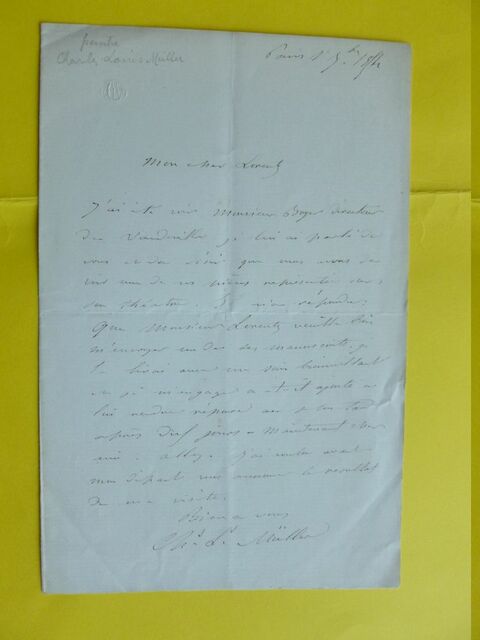 peintre
Charles Louis Müller
Paris
Mon cher Lorentz
J'ai été voir Monsieur Boyer directeur
du Vaudeville je lui ai parlé de
vous et du désir que vous avez de
voir une de vos pièces représentée dans
son théâtre. Il m'a répondu:
Que Monsieur Lorentz veuille bien
m'envoyer un de ses manuscrits, je
le lirai avec un soin bienveillant
et je m'engage a t-il ajouté a
lui rendre reponse au plus tard
après dix jours. Maintenant cher
ami, allez. J'ai voulu avant
mon départ vous annoncer le résultat
de ma visite.
Bien a vous
Chs Ls Müller